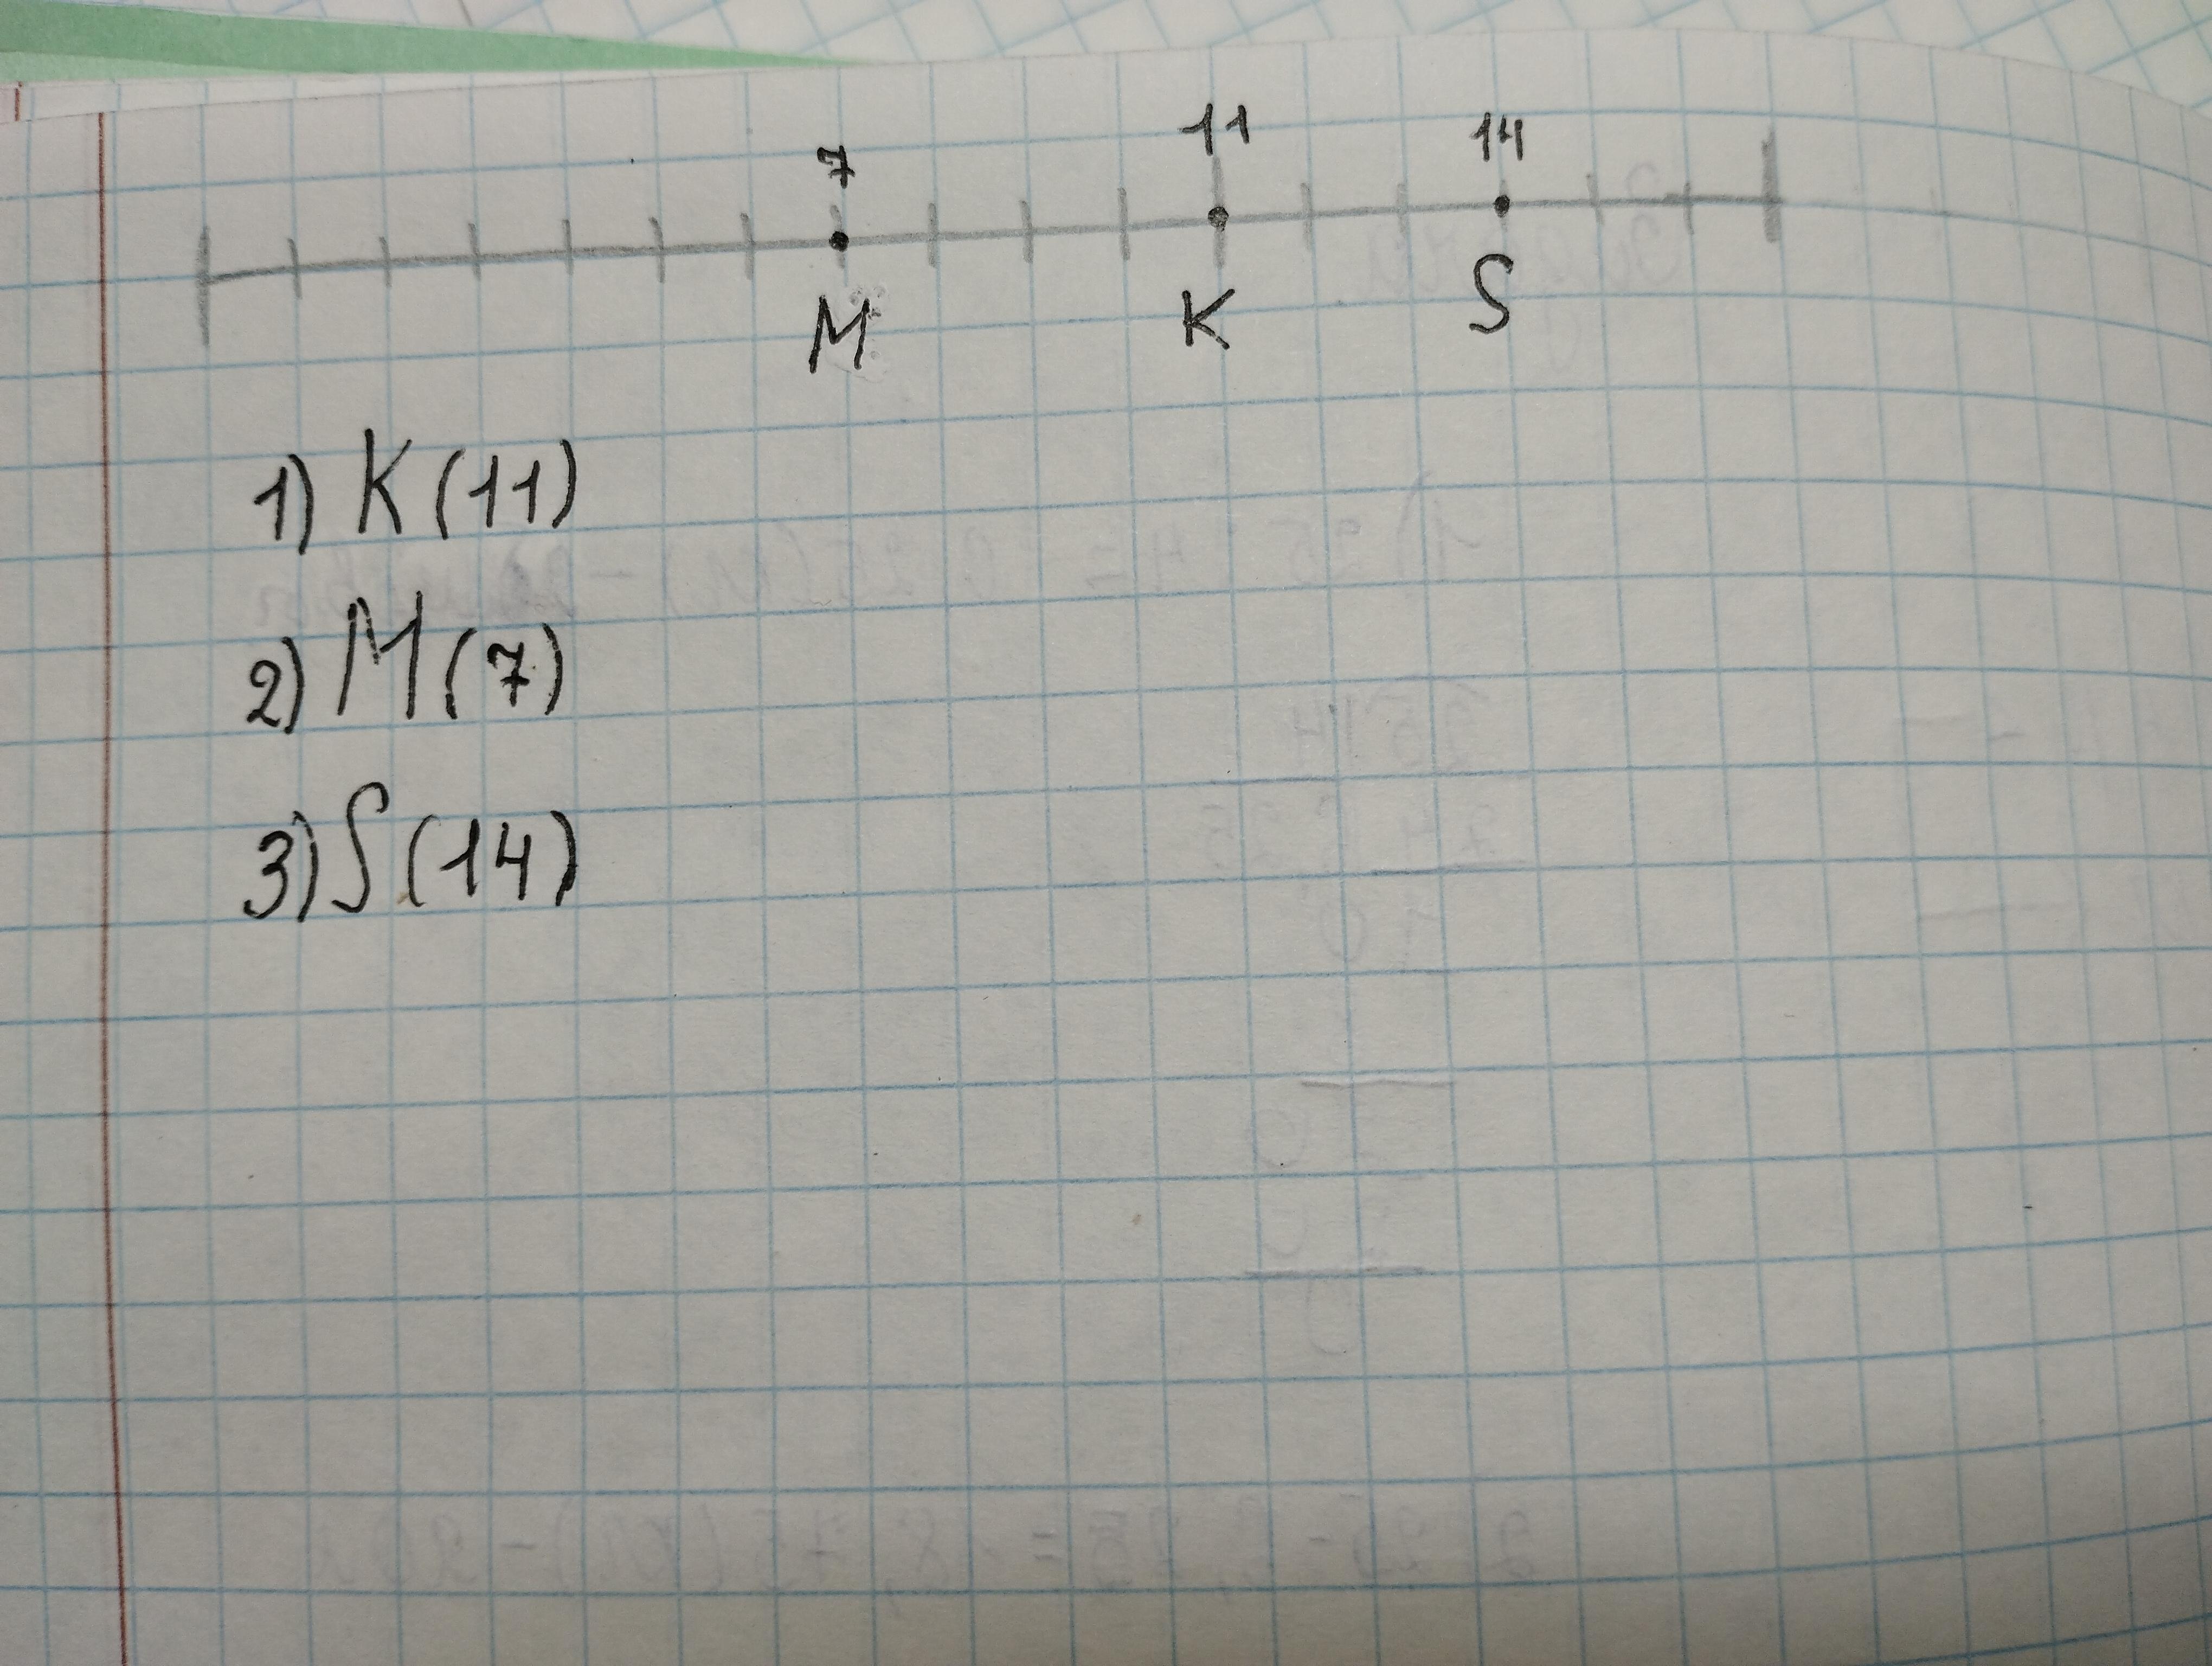 7 11 14
M K S
1) K(11)
2) M(7)
3) S(14)